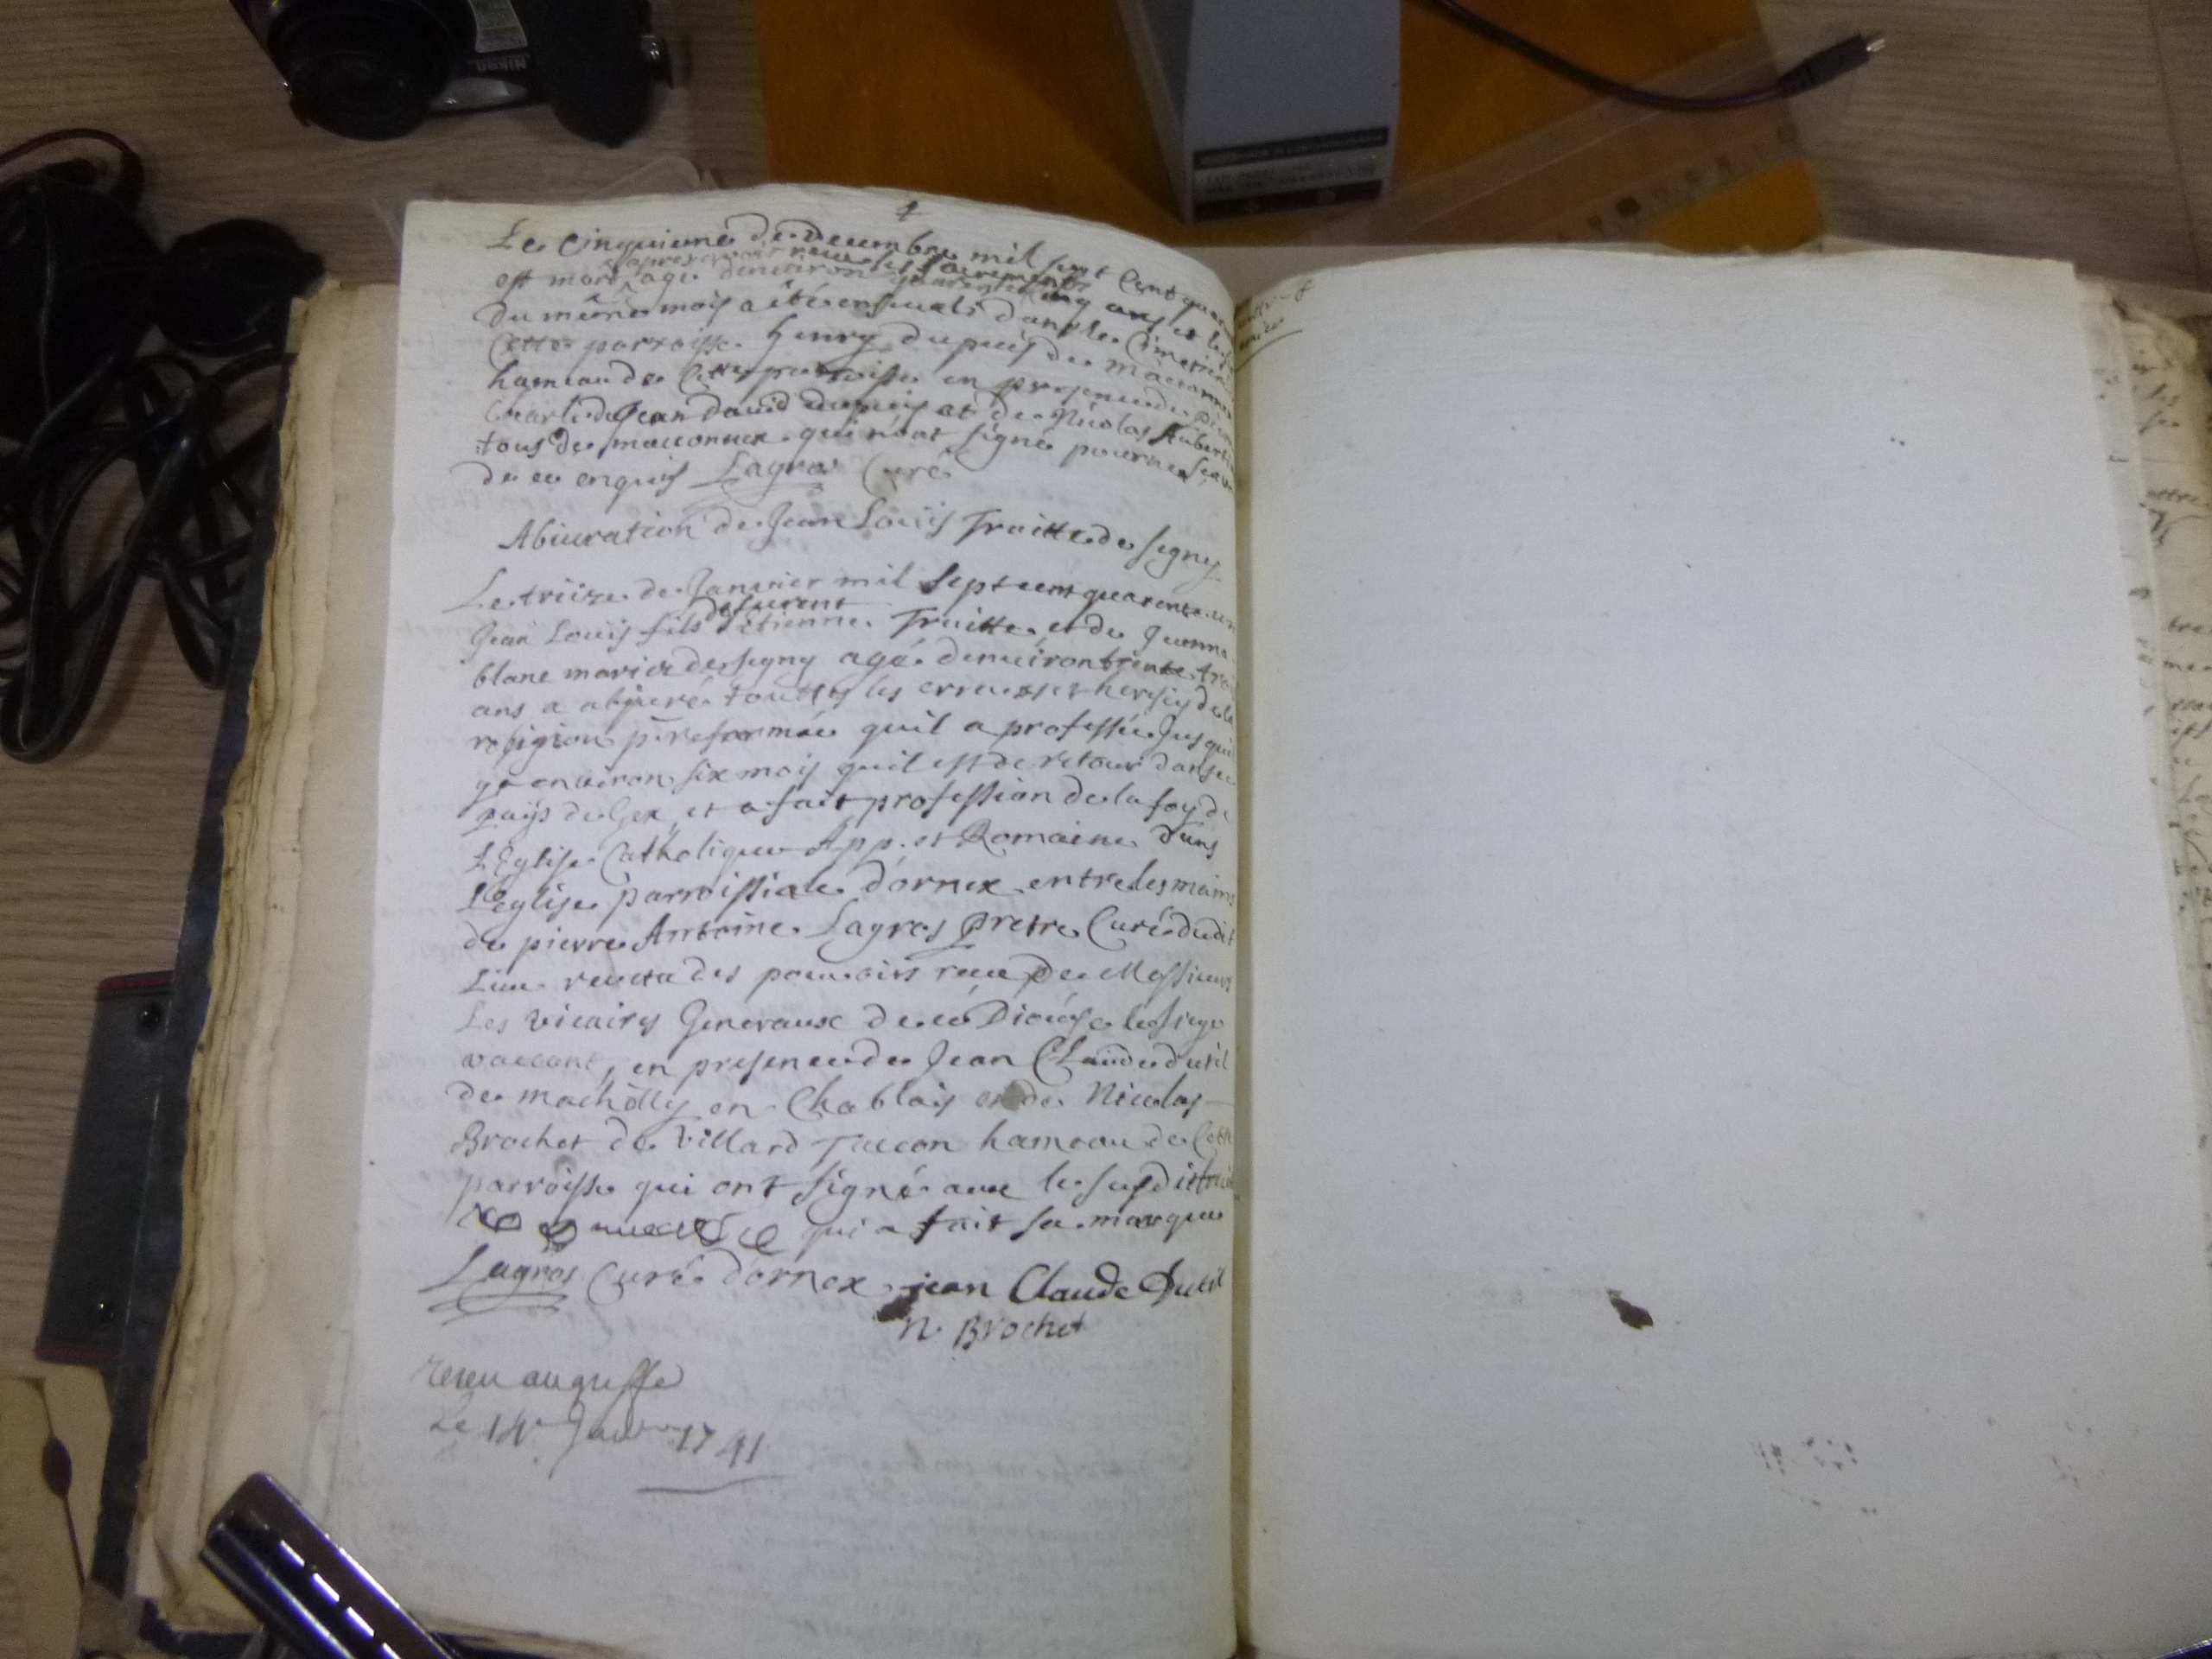 Le cinquieme de decembre mil sept cent quara
est mort apres avoir receu les sacrements age denviron quarente cinq ans et le
du même mois a été enseveli dans le cimetiere
cette parroisse henry dupuis de maconnex
hameau de cette parroisse en presence de pierre
Charle de Jean david dupuis et de Nicolas Aubert
tous de maconnex qui n'ont signé pour ne scavoir
de ce enquis Lagros Curé
Abiuration de Jean Louïs Fruitte de segny
Le treize de Janvier mil sept cent quarente un
Jean Louïs fils defeu etienne Fruitte et de Jeanne
blanc marier de segny agé denviron trente tro
ans a abjuré touttes les erreurs et heresies de la
religion p. reformée quil a professée Jusqu
ya environ six mois quil est de retour dans ce
païs de Gex, et a fait profession de la foy de
L'Eglise Catholique App. et Romaine dans
L'eglise parroissiale d'ornex entre les mains
de pierre Antoine Lagros pretre Curé dudit
Lieu revetu des pouvoirs receu de Messieurs
Les vicaires Generaux de ce Diocése le siege
vaccant, en presence de Jean Claude dutil
de machilly en Chablais et de Nicolas
Brochet de Villard Taccon hameau de Cette
parroisse qui ont signé avec le susdit fruit
qui a fait sa marque
Lagros Curé d'ornex jean Claude Dutil
N. Brochet
receu au greffe
Le 14e Janvier 1741